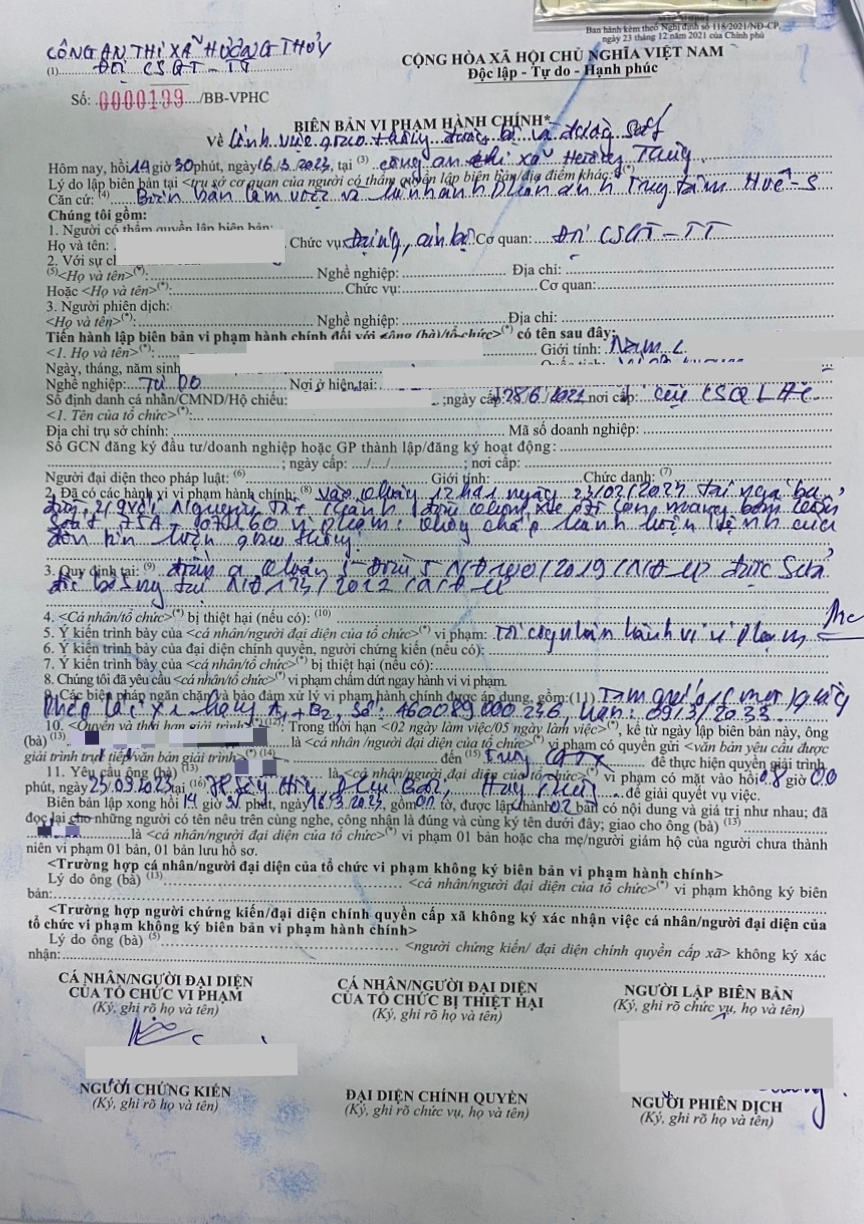 Ban hành kèm theo Nghị định số 118/2021/NĐ-CP
ngày 23 tháng 12 năm 2021 của Chính phủ
CÔNG AN THỊ XÃ HƯƠNG THỦY
(1) ĐỘI CSGT-TT
CỘNG HÒA XÃ HỘI CHỦ NGHĨA VIỆT NAM
Độc lập - Tự do - Hạnh phúc
Số: 0000199/BB-VPHC
BIÊN BẢN VI PHẠM HÀNH CHÍNH*
Về lĩnh vực giao thông đường bộ và đường sắt
Hôm nay, hồi 14 giờ 30 phút, ngày 16/3/2023, tại (3) công an thị xã Hương
Lý do lập biên bản tại <trụ sở cơ quan của người có thẩm quyền lập biên bản/địa điểm khác>(*)
Căn cứ: (4) Biên bản làm việc và phản ánh Trung tâm Huế-S
Chúng tôi gồm:
1. Người có thẩm quyền lập biên bản:
Họ và tên: Chức vụ: cán bộ Cơ quan: Đội CSGT-TT
2. Với sự
(5)<Họ và tên>(*): Nghề nghiệp: Địa chỉ:
Hoặc <Họ và tên>(*): Chức vụ: Cơ quan:
3. Người phiên dịch:
<Họ và tên>(*): Nghề nghiệp: Địa chỉ:
Tiến hành lập biên bản vi phạm hành chính đối với <ông (bà)/tổ chức>(*) có tên sau đây:
<1. Họ và tên>(*): Giới tính: Nam
Ngày, tháng, năm sinh
Nghề nghiệp: Tự do Nơi ở hiện tại:
Số định danh cá nhân/CMND/Hộ chiếu: ;ngày cấp: 28/6/2021 nơi cấp: cục CSQLHC
<1. Tên của tổ chức>(*):
Địa chỉ trụ sở chính: Mã số doanh nghiệp:
Số GCN đăng ký đầu tư/doanh nghiệp hoặc GP thành lập/đăng ký hoạt động:
; ngày cấp: / / ; nơi cấp:
Người đại diện theo pháp luật: (6) Giới tính: Chức danh: (7)
2. Đã có các hành vi vi phạm hành chính: (8) Vào ngày 23/02/2023 tại ngã ba
Nguyễn điều khiển xe mang biển kiểm
soát 75A- vi phạm: không chấp hành hiệu lệnh của
đèn tín hiệu giao thông.
3. Quy định tại: (9) điểm a khoản 5 điều 5 NĐ 100/2019/NĐ-CP được sửa
đổi bổ sung tại NĐ 123/ NĐ-CP
4. <Cá nhân/tổ chức>(*) bị thiệt hại (nếu có): (10)
5. Ý kiến trình bày của <cá nhân/người đại diện của tổ chức>(*) vi phạm: Tôi công nhận hành vi vi phạm
6. Ý kiến trình bày của đại diện chính quyền, người chứng kiến (nếu có):
7. Ý kiến trình bày của <cá nhân/tổ chức>(*) bị thiệt hại (nếu có):
8. Chúng tôi đã yêu cầu <cá nhân/tổ chức>(*) vi phạm chấm dứt ngay hành vi vi phạm.
9. Các biện pháp ngăn chặn và bảo đảm xử lý vi phạm hành chính được áp dụng, gồm:(11) Tạm giữ 01 một giấy
phép lái xe hạng A1+B2, số: 460089000246, hạn: 2033
10. <Quyền và thời hạn giải trình>(*)(12): Trong thời hạn <02 ngày làm việc/05 ngày làm việc>(*), kể từ ngày lập biên bản này, ông
(bà) (13) là <cá nhân /người đại diện của tổ chức>(*) vi phạm có quyền gửi <văn bản yêu cầu được
giải trình trực tiếp/văn bản giải trình>(*) (14) đến (15) để thực hiện quyền giải trình.
11. Yêu cầu ông (bà) (13) là <cá nhân/người đại diện của tổ chức>(*) vi phạm có mặt vào hồi 08 giờ 00
phút, ngày 23/09/2023 tại (16) Phú Bài, Hương Thủy để giải quyết vụ việc.
Biên bản lập xong hồi 14 giờ phút, ngày 16/3/2023, gồm 01 tờ, được lập thành 02 bản có nội dung và giá trị như nhau; đã
đọc lại cho những người có tên nêu trên cùng nghe, công nhận là đúng và cùng ký tên dưới đây; giao cho ông (bà) (13)
là <cá nhân/người đại diện của tổ chức>(*) vi phạm 01 bản hoặc cha mẹ/người giám hộ của người chưa thành
niên vi phạm 01 bản, 01 bản lưu hồ sơ.
<Trường hợp cá nhân/người đại diện của tổ chức vi phạm không ký biên bản vi phạm hành chính>
Lý do ông (bà) (13) <cá nhân/người đại diện của tổ chức>(*) vi phạm không ký biên
bản:
<Trường hợp người chứng kiến/đại diện chính quyền cấp xã không ký xác nhận việc cá nhân/người đại diện của
tổ chức vi phạm không ký biên bản vi phạm hành chính>
Lý do ông (bà) (5) <người chứng kiến/ đại diện chính quyền cấp xã> không ký xác
nhận:
CÁ NHÂN/NGƯỜI ĐẠI DIỆN
CỦA TỔ CHỨC VI PHẠM
(Ký, ghi rõ họ và tên)
CÁ NHÂN/NGƯỜI ĐẠI DIỆN
CỦA TỔ CHỨC BỊ THIỆT HẠI
(Ký, ghi rõ họ và tên)
NGƯỜI LẬP BIÊN BẢN
(Ký, ghi rõ chức vụ, họ và tên)
NGƯỜI CHỨNG KIẾN
(Ký, ghi rõ họ và tên)
ĐẠI DIỆN CHÍNH QUYỀN
(Ký, ghi rõ chức vụ, họ và tên)
NGƯỜI PHIÊN DỊCH
(Ký, ghi rõ họ và tên)